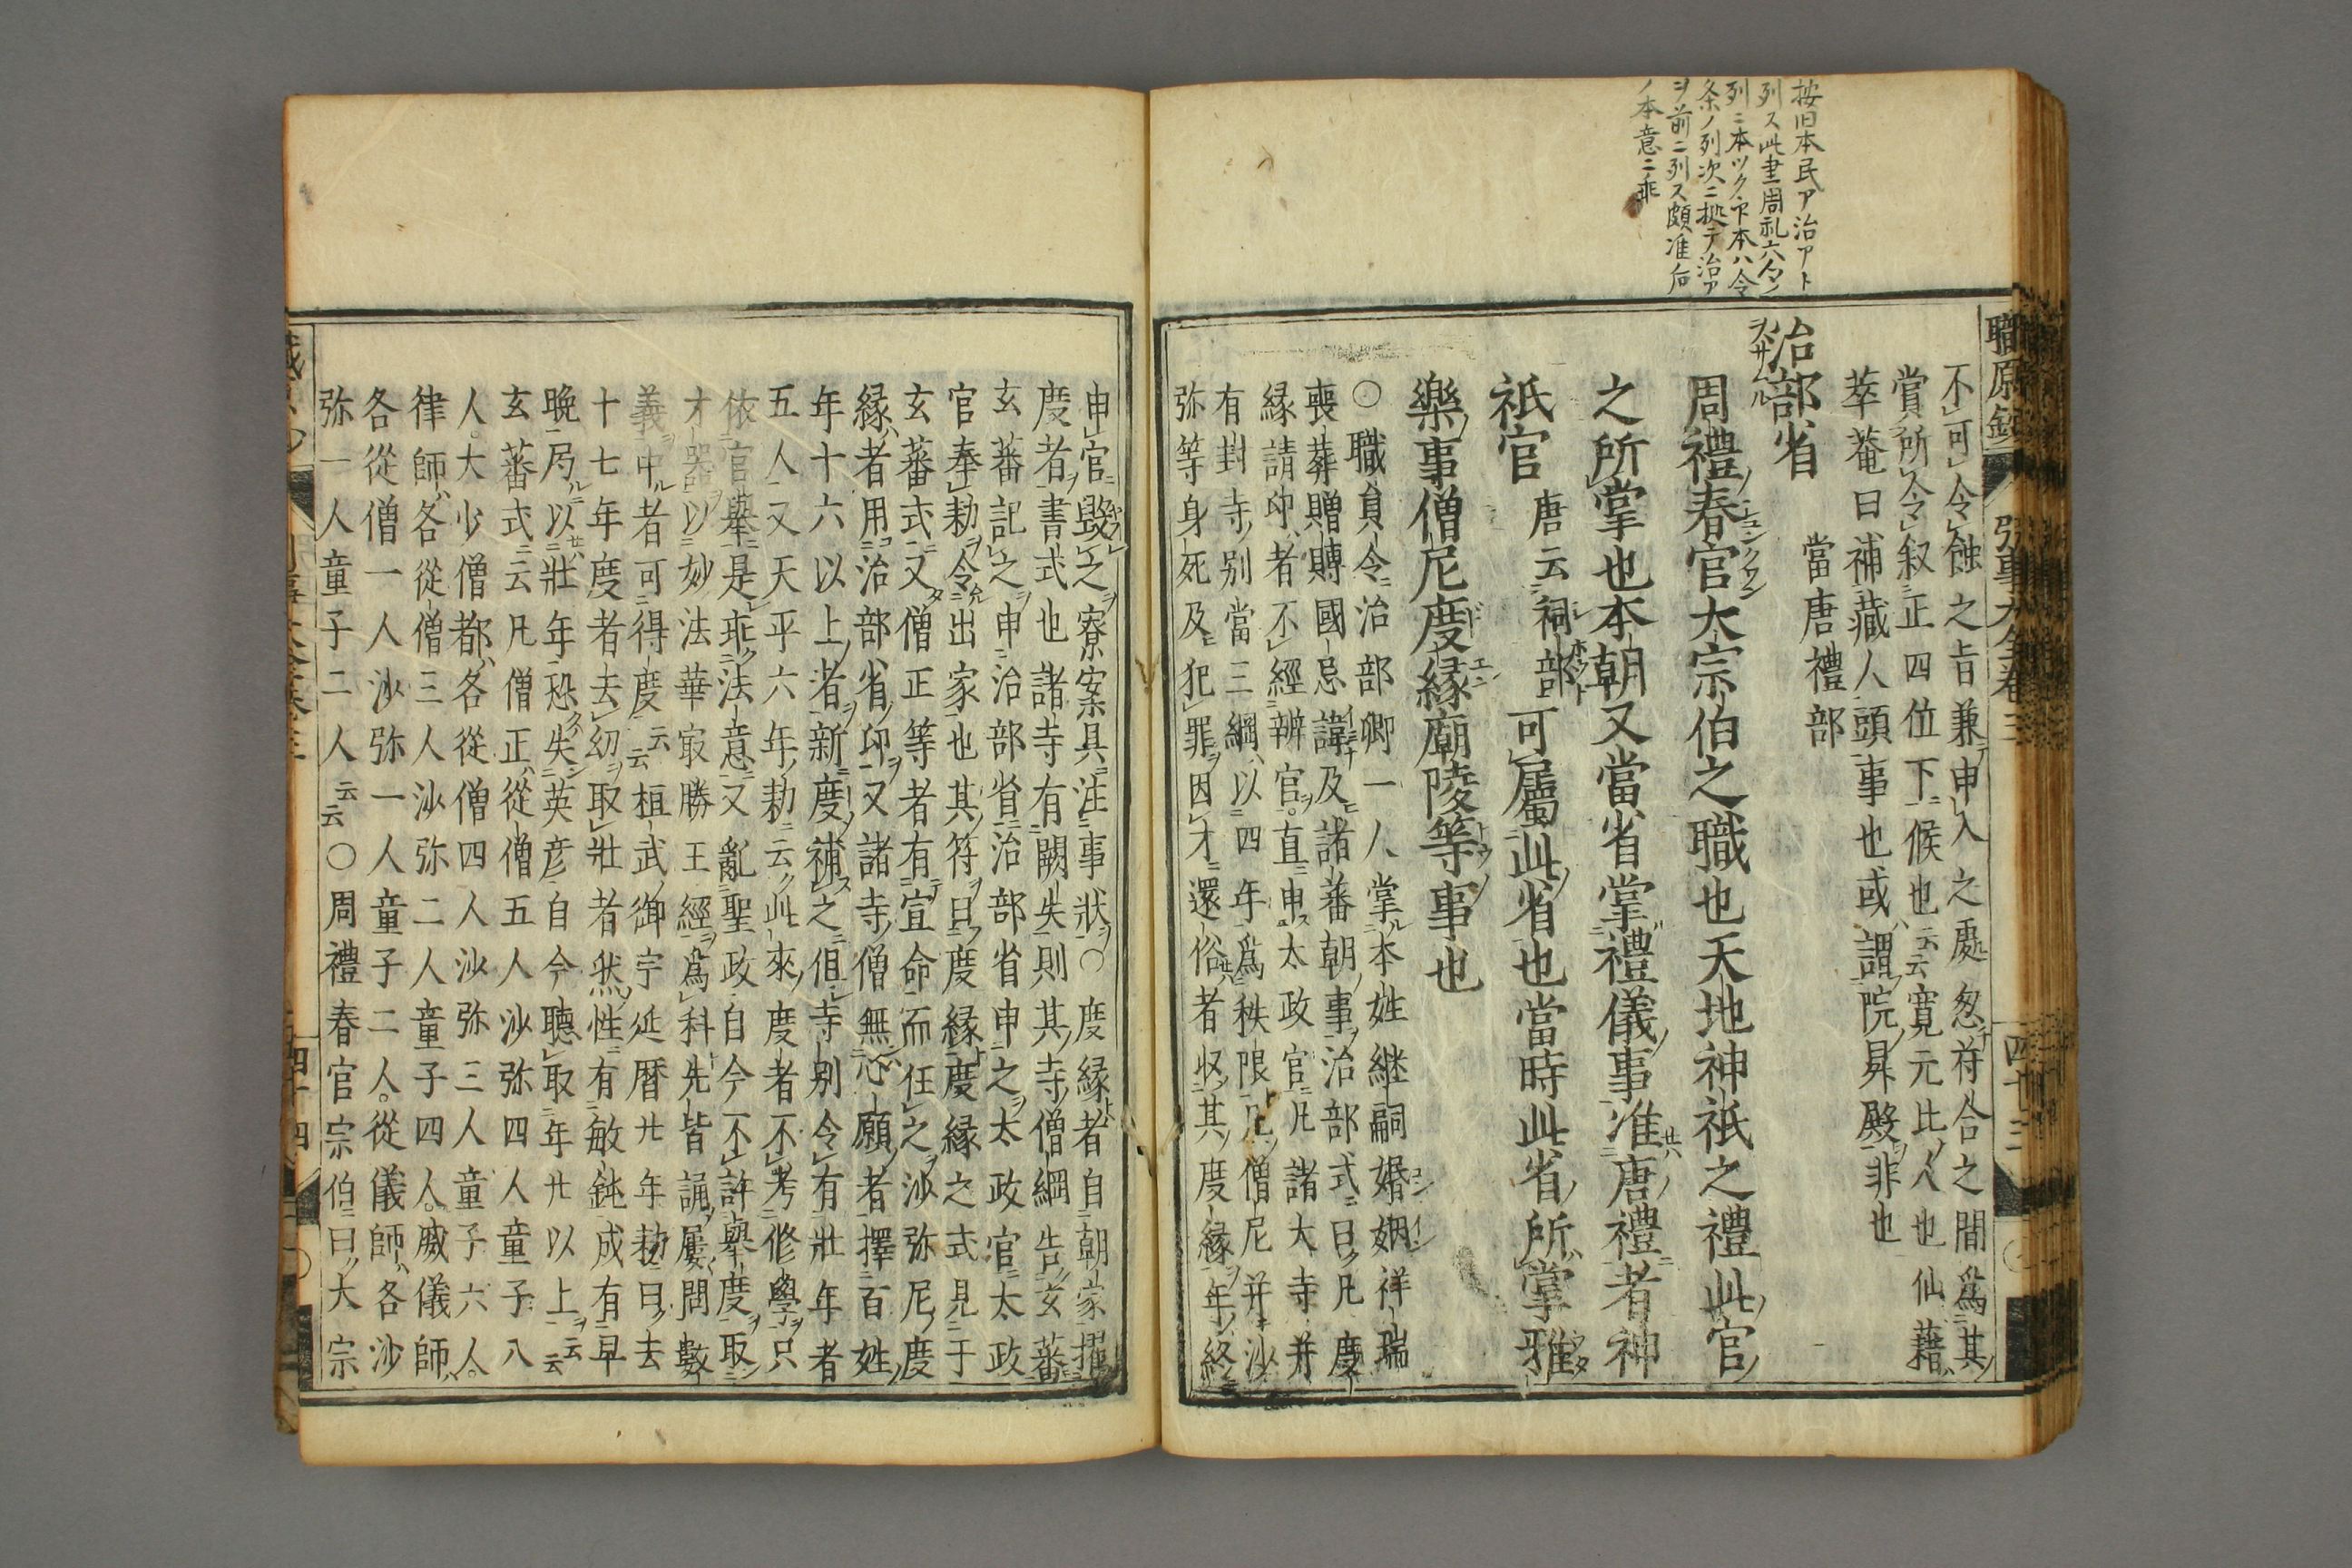 按旧本民ア治アト
列ス此書周礼六令ノ
列ニ本ツク卞本ハ令
条ノ列次ニ拠テ治ア
ヲ前ニ列ス頗准后
ノ本意ニ乖
職原鈔
四十三
不可令蝕之旨兼申入之處怱苻合之間爲其
賞所令叙正四位下候也云云寛元比人也仙藉
萃菴曰補藏人頭事也或謂院昇殿非也
治部省 當唐禮部
周禮春官大宗伯之職也天地神祇之禮此官
之所掌也本朝又當省掌禮儀事准唐禮者神
祇官 唐云祠部 可屬此省也當時此省所掌雅
樂事僧尼度縁廟陵等事也
○職員令治部卿一人掌本姓継嗣婚姻祥瑞
喪葬贈賻國忌諱及諸蕃朝事治部式曰凡度
縁請印者不經辨官直申太政官凡諸大寺并
有封寺別當三綱以四年爲秩限凡僧尼并沙
弥等身死及犯罪因才還俗者収其度縁年終
申官毀之寮案具注事狀○度縁者自朝家擢
度者書式也諸寺有闕失則其寺僧綱告玄蕃
玄蕃記之申治部省治部省申之太政官太政
官奉勅令出家也其符曰度縁度縁之式見于
玄蕃式又僧正等者有宣命而任之沙弥尼度
縁者用治部省印又諸寺僧無心願者擇百姓
年十六以上者新度補之但寺別令有壯年者
五人又天平六年勅云此來度者不考修學只
依官舉是乖法意又亂聖政自今不許舉度取
才器以妙法華㝡勝王經爲科先皆誦屢問數
義中者可得度云云桓武御宇延暦廿年勅曰去
十七年度者去幼取壯者然性有敏鈍成有早
晩局以壯年恐失英彦自今聽取年廿以上云云
玄蕃式云凡僧正從僧五人沙弥四人童子八
人大少僧都各從僧四人沙弥三人童子六人
律師各從僧三人沙弥二人童子四人威儀師
各從僧一人沙弥一人童子二人從儀師各沙
弥一人童子二人云云○周禮春官宗伯曰大宗
四十四